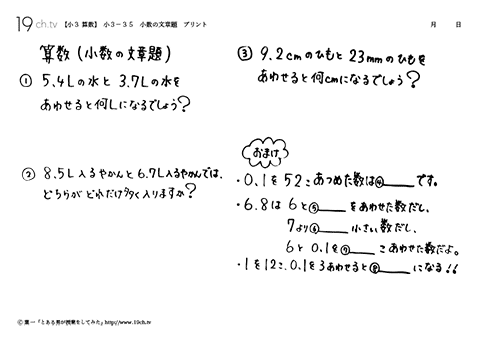 19ch.tv 【小3 算数】 小3-35 小数の文章題 プリント 月 日
算数(小数の文章題)
① 5.4Lの水と 3.7Lの水を
あわせると何Lになるでしょう?
② 8.5L入るやかんと6.7L入るやかんでは、
どちらが どれだけ多く入りますか?
③ 9.2cmのひもと 23mmのひもを
あわせると何cmになるでしょう?
おまけ
・0.1を52こあつめた数は④____です。
・6.8は 6と⑤____をあわせた数だし、
7より⑥____小さい数だし、
6と 0.1を⑦____こあわせた数だよ。
・1を12こ、0.1を3あわせると⑧____になる!!
Ⓒ 葉一「とある男が授業をしてみた」http://www.19ch.tv